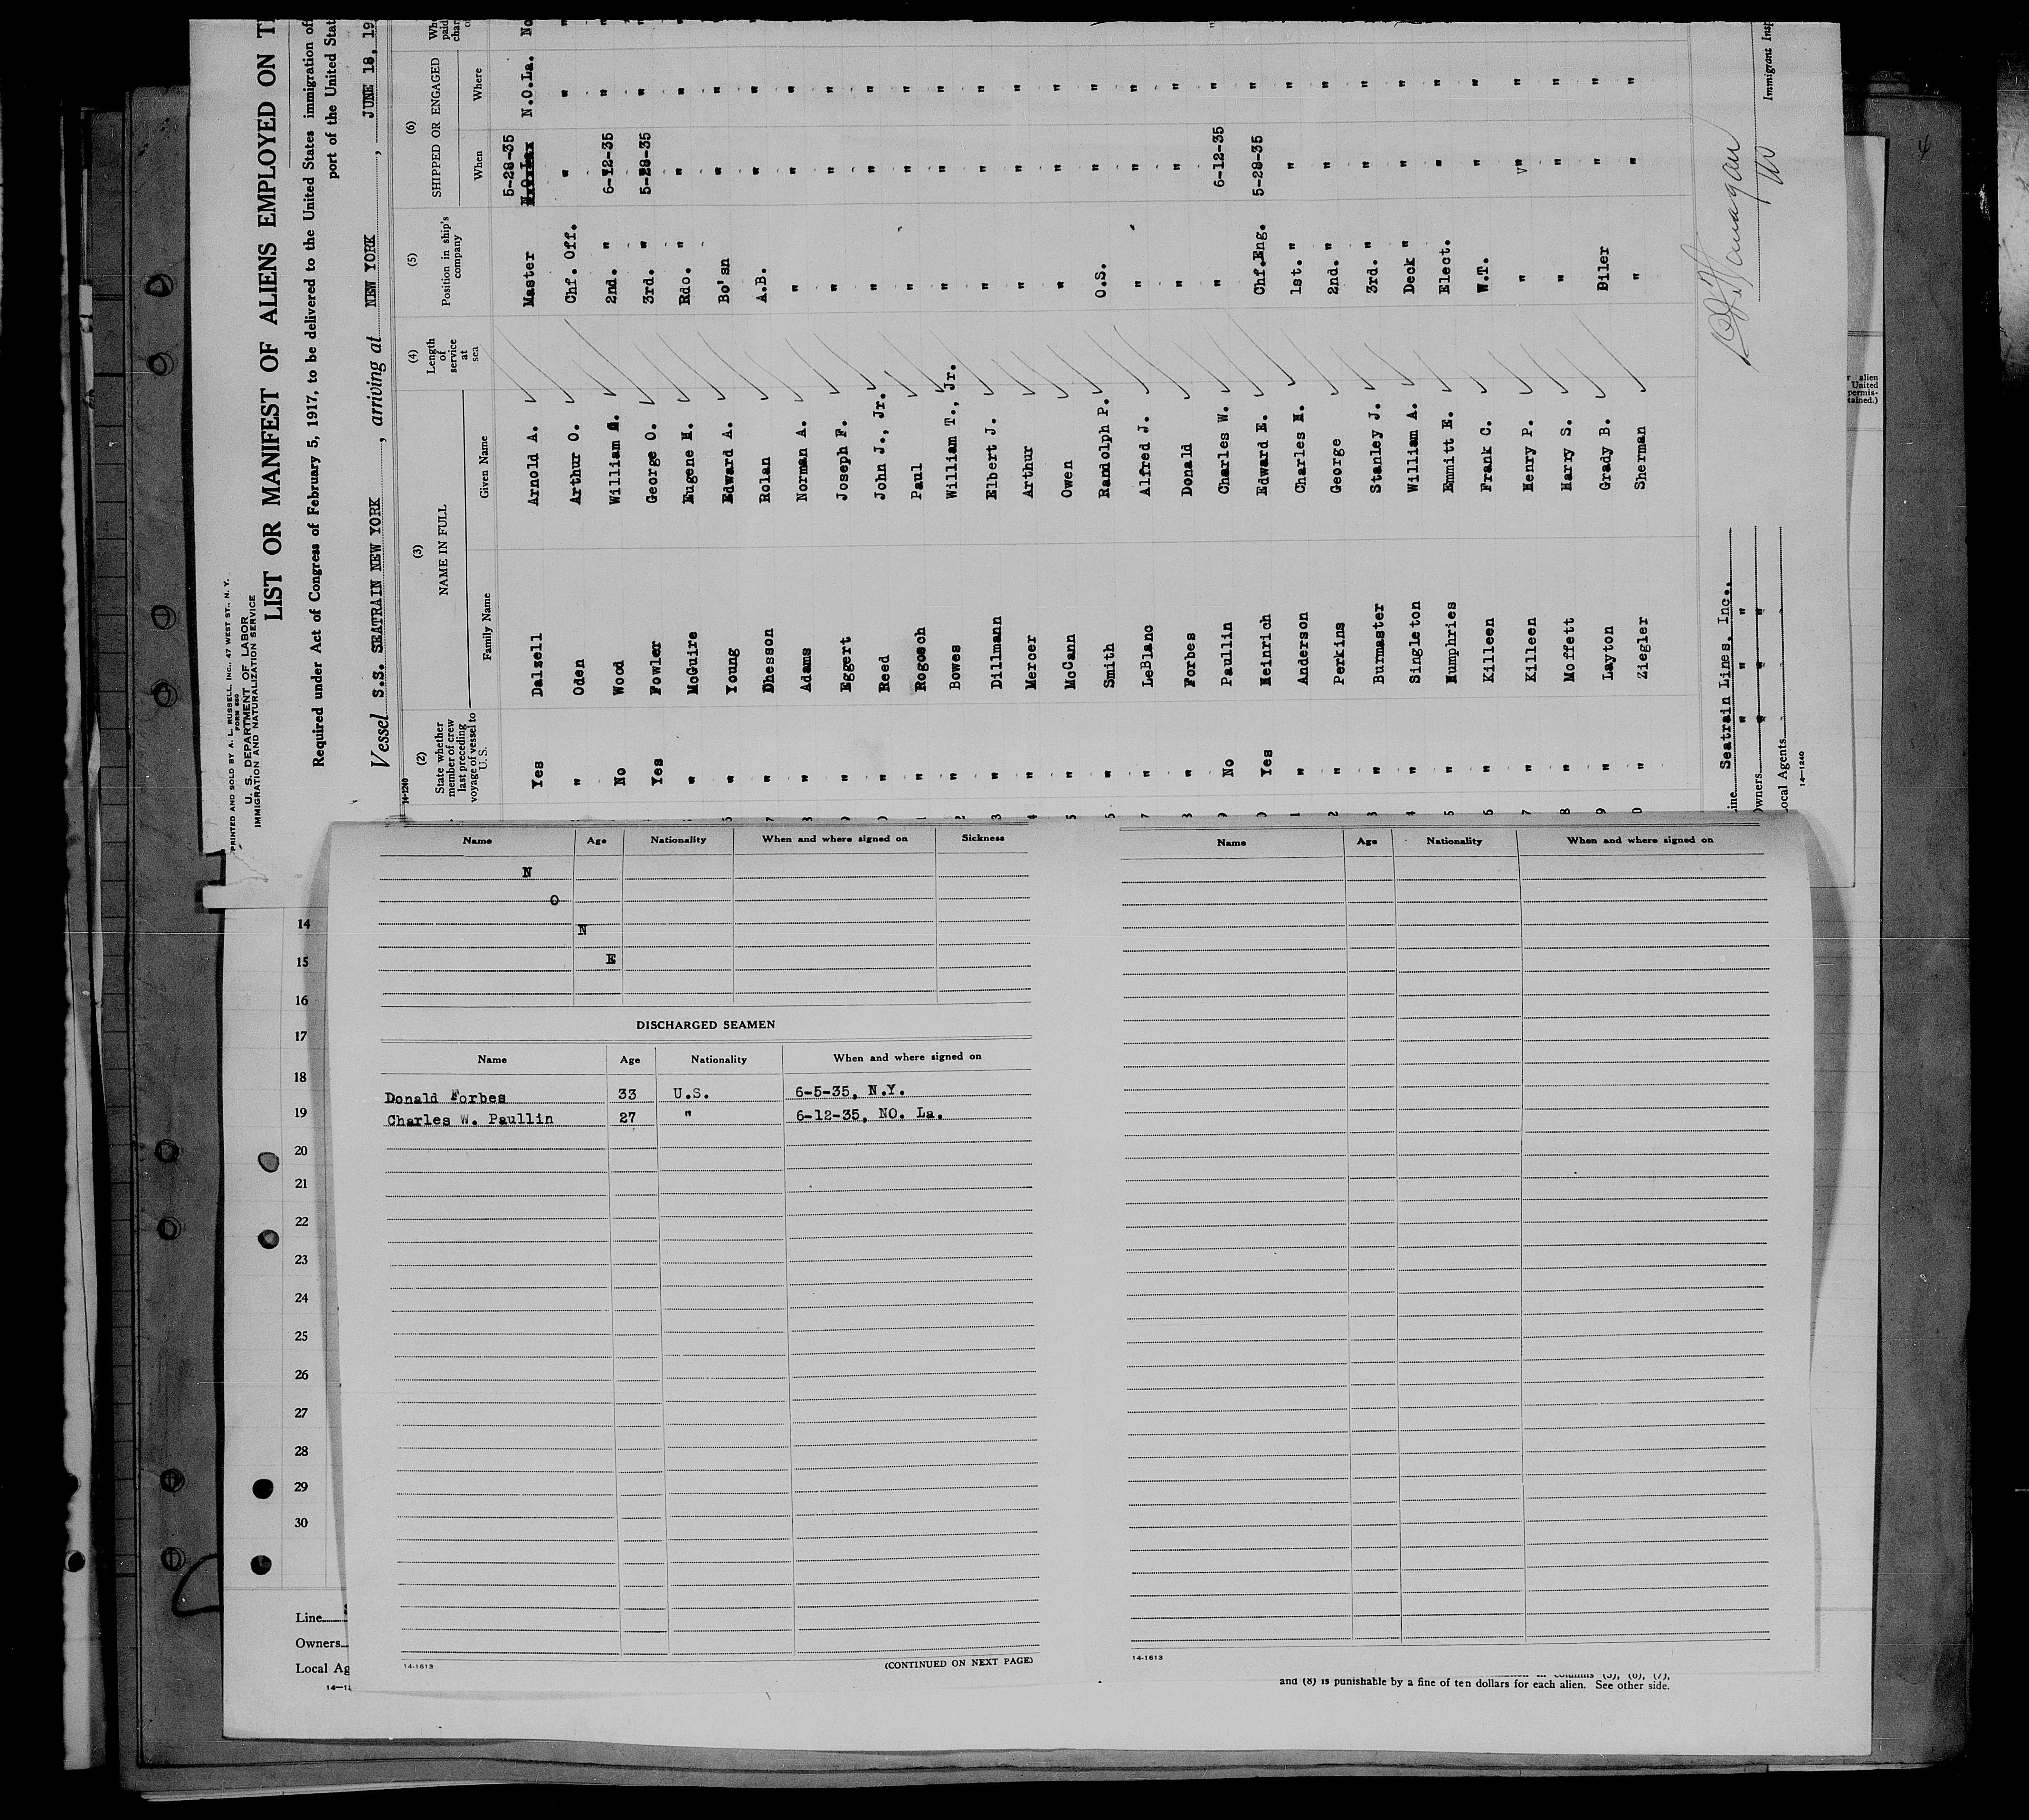 PRINTED AND SOLD BY A. L. RUSSELL, INC., 47 WEST ST., N. Y.
FORM 680
U. S. DEPARTMENT OF LABOR
IMMIGRATION AND NATURALIZATION SERVICE
LIST OR MANIFEST OF ALIENS EMPLOYED ON
Required under Act of Congress of February 5, 1917, to be delivered to the United States immigration of
port of the United Stat
Vessel S.S. SEATRAIN NEW YORK, arriving at NEW YORK, JUNE 18, 19
14-1240
(2) (3) (4) (5) (6)
State whether member of crew last preceding voyage of vessel to U. S. NAME IN FULL Length of service at sea Position in ship's company SHIPPED OR ENGAGED
Family Name Given Name When Where
5-28-35
Yes Dalzell Arnold A. Master N.O.La. No
" Oden Arthur O. Chf. Off. " " "
No Wood William 2nd. " 6-12-35 " "
Yes Fowler George O. 3rd. " 5-28-35 " "
" McGuire Eugene H. Rdo. " " " "
" Young Edward A. Bo'sn " " "
" Dhesson Rolan A.B. " " "
" Adams Norman A. " " " "
" Eggert Joseph F. " " " "
" Reed John J., Jr. " " " "
" Rogosch Paul " " " "
" Bowes William T., Jr. " " " "
" Dillmann Elbert J. " " " "
" Mercer Arthur " " " "
" McCann Owen " " " "
" Smith Randolph P. O.S. " " "
" LeBlanc Alfred J. " " " "
" Forbes Donald " " " "
No Paullin Charles W. " 6-12-35 " "
Yes Heinrich Edward E. Chf.Eng. 5-28-35 " "
" Anderson Charles H. 1st. " " " "
" Perkins George 2nd. " " " "
" Burmaster Stanley J. 3rd. " " " "
" Singleton William A. Deck " " " "
" Humphries Emmitt E. Elect. " " "
" Killeen Frank C. W.T. " " "
" Killeen Henry P. " " " "
" Moffett Harry S. " " " "
" Layton Grady B. Oiler " " "
" Ziegler Sherman " " " "
ine Seatrain Lines, Inc.,
wners " " "
ocal Agents " " "
14-1240
Immigrant Insp
r alien
United
permis-
tained.)
Name Age Nationality When and where signed on Sickness
N
O
N
E
DISCHARGED SEAMEN
Name Age Nationality When and where signed on
Donald Forbes 33 U.S. 6-5-35, N.Y.
Charles W. Paullin 27 " 6-12-35, NO. La.
(CONTINUED ON NEXT PAGE)
14-1613
Name Age Nationality When and where signed on
14-1613
14
15
16
17
18
19
20
21
22
23
24
25
26
27
28
29
30
Line
Owners
Local Ag
and (8) is punishable by a fine of ten dollars for each alien. See other side.